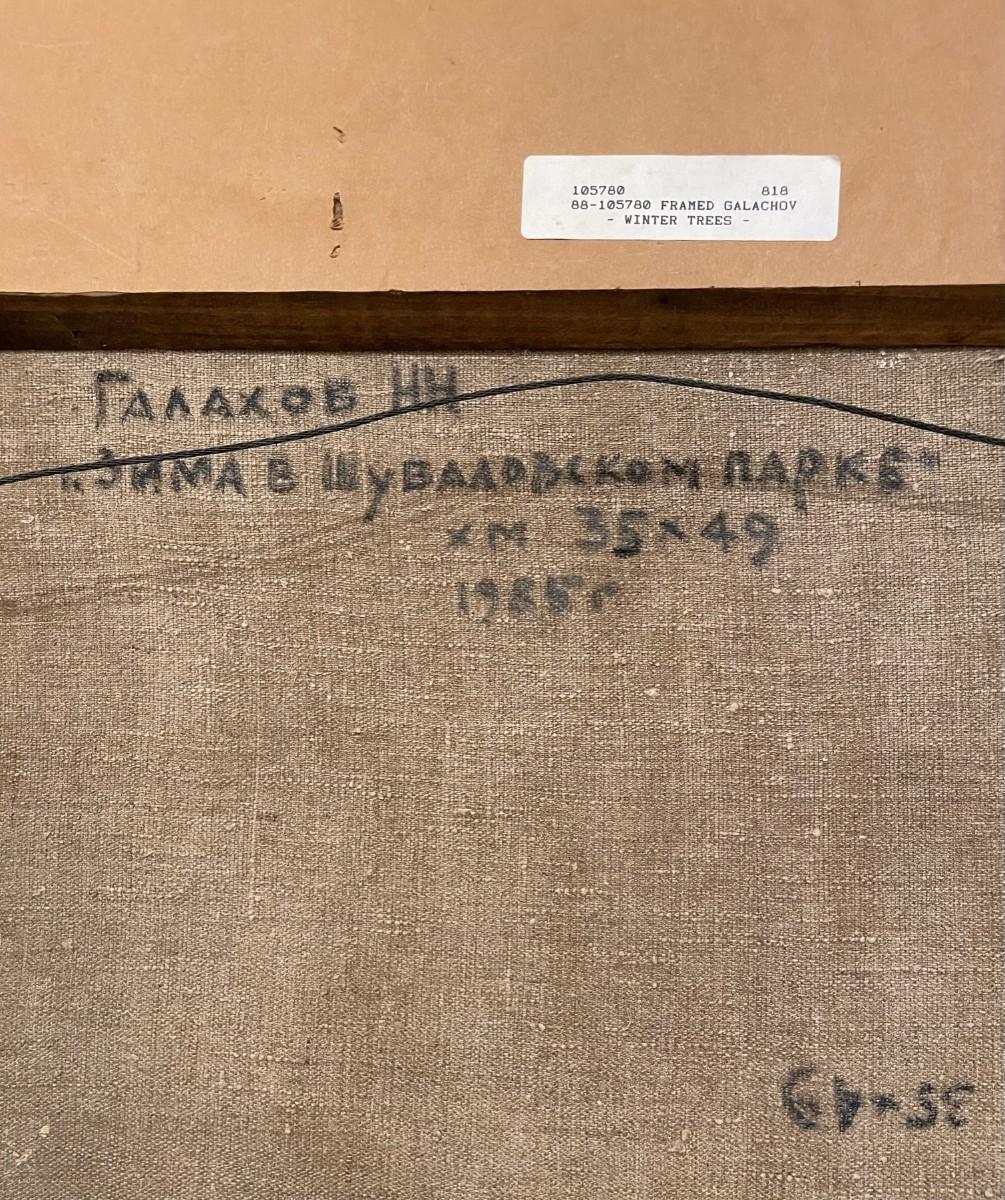 105780 818
88-105780 FRAMED GALACHOV
- WINTER TREES -
ГАЛАХОВ НН
"ЗИМА В ШУВАЛОВСКОМ ПАРКЕ"
хм 35×49
1985г
35×49